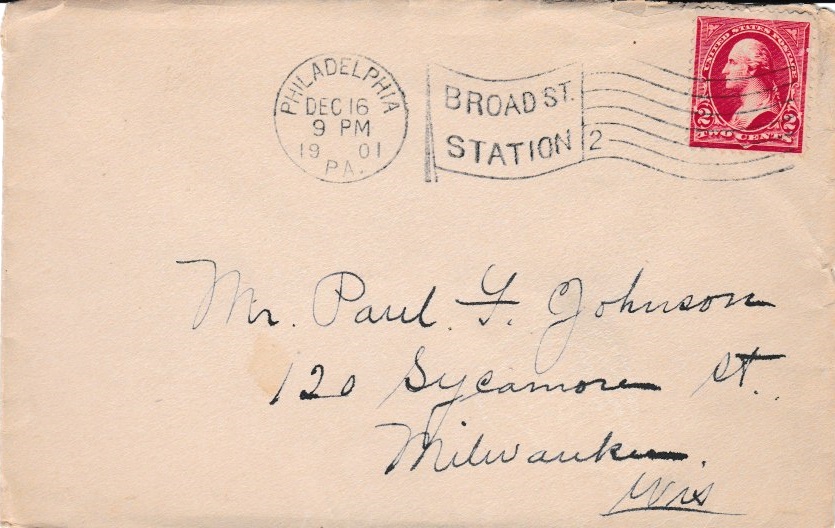 PHILADELPHIA
DEC 16
9 PM
19 01
PA.
BROAD ST.
STATION 2
UNITED STATES POSTAGE
2 2
TWO CENTS
Mr. Paul F. Johnson
120 Sycamore St.
Milwaukee.
Wis